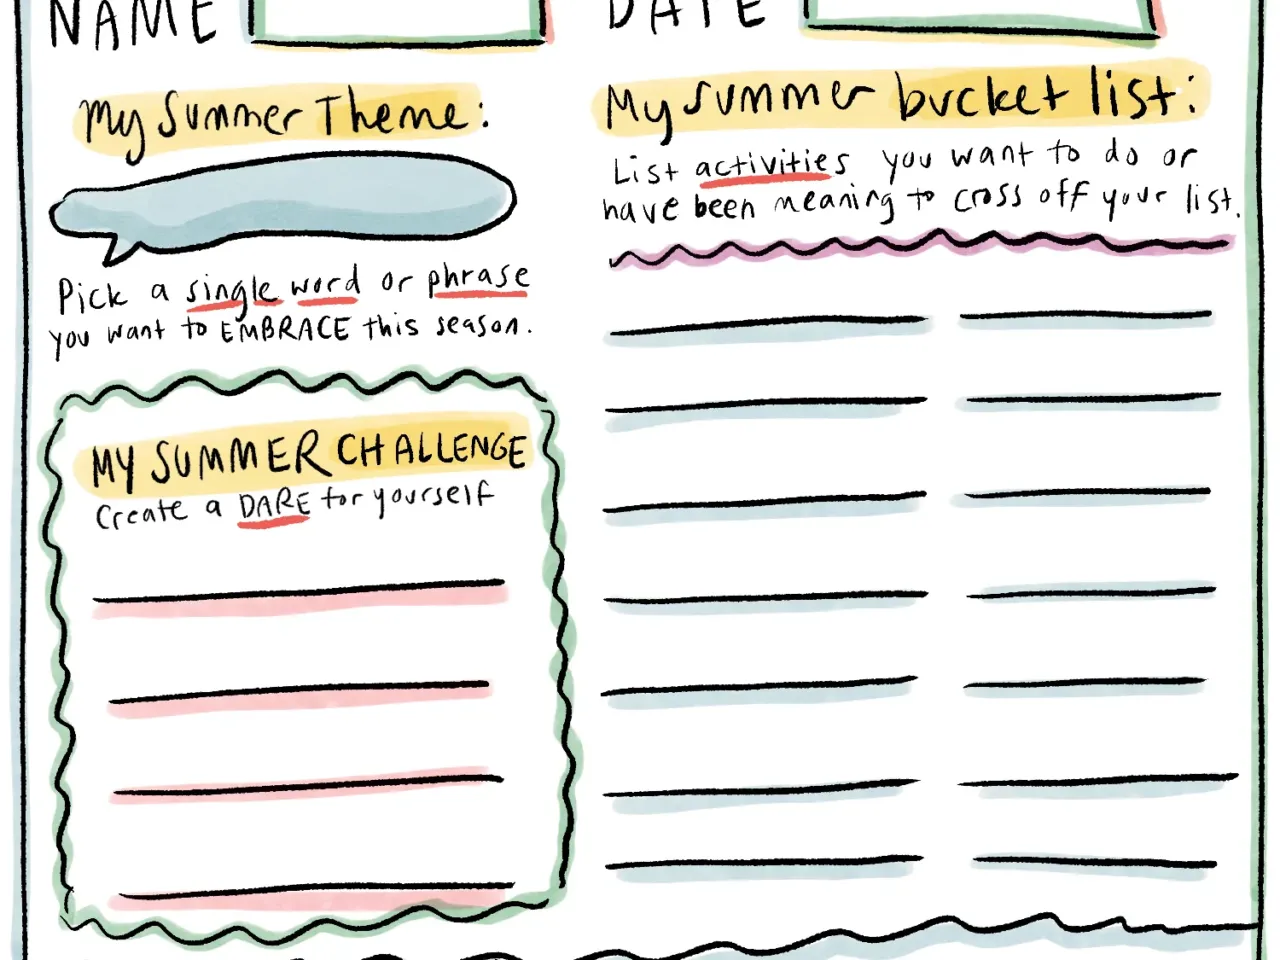 NAME
DATE
My Summer Theme:
Pick a single word or phrase
you want to EMBRACE this season.
MY SUMMER CHALLENGE
Create a DARE for yourself
My summer bucket list:
List activities you want to do or
have been meaning to cross off your list.